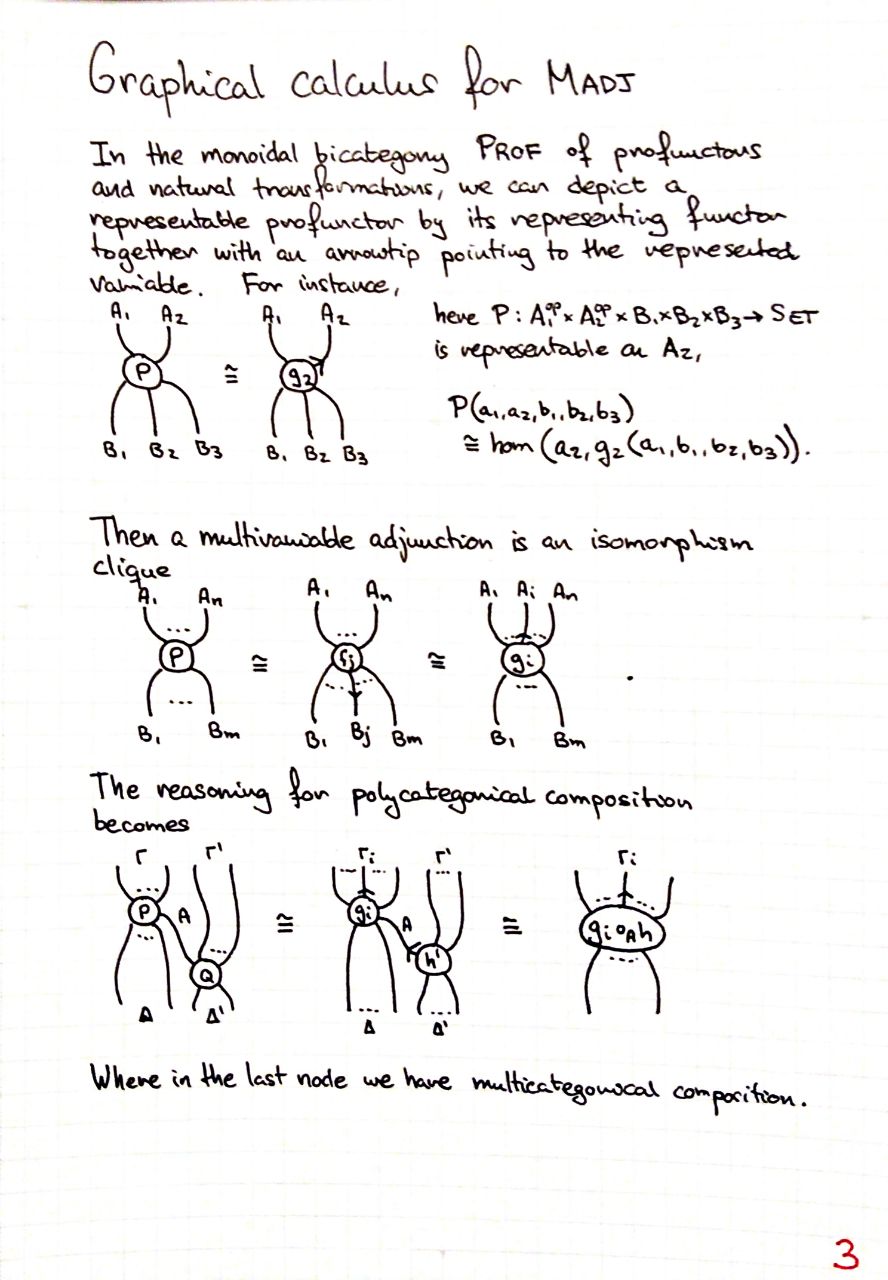 Graphical calculus for MADJ
In the monoidal bicategory PROF of profunctors
and natural transformations, we can depict a
representable profunctor by its representing functor
together with an arrowtip pointing to the represented
variable. For instance,
A₁ A₂ A₁ A₂
P ≅ g₂
B₁ B₂ B₃ B₁ B₂ B₃
here P : A₁ᵒᵖ × A₂ᵒᵖ × B₁×B₂×B₃ → SET
is representable on A₂,
P(a₁,a₂,b₁,b₂,b₃)
≅ hom (a₂, g₂(a₁,b₁,b₂,b₃)).
Then a multivariable adjunction is an isomorphism
clique
A₁ An A₁ An A₁ Ai An
... ... ...
P ≅ fj ≅ gi .
... ... ...
B₁ Bm B₁ Bj Bm B₁ Bm
The reasoning for polycategorical composition
becomes
Γ Γ' Γi Γ' Γi
P A ≅ gi A ≅ gi∘Ah
Q h'
Δ Δ' Δ Δ'
Where in the last node we have multicategorical composition.
3